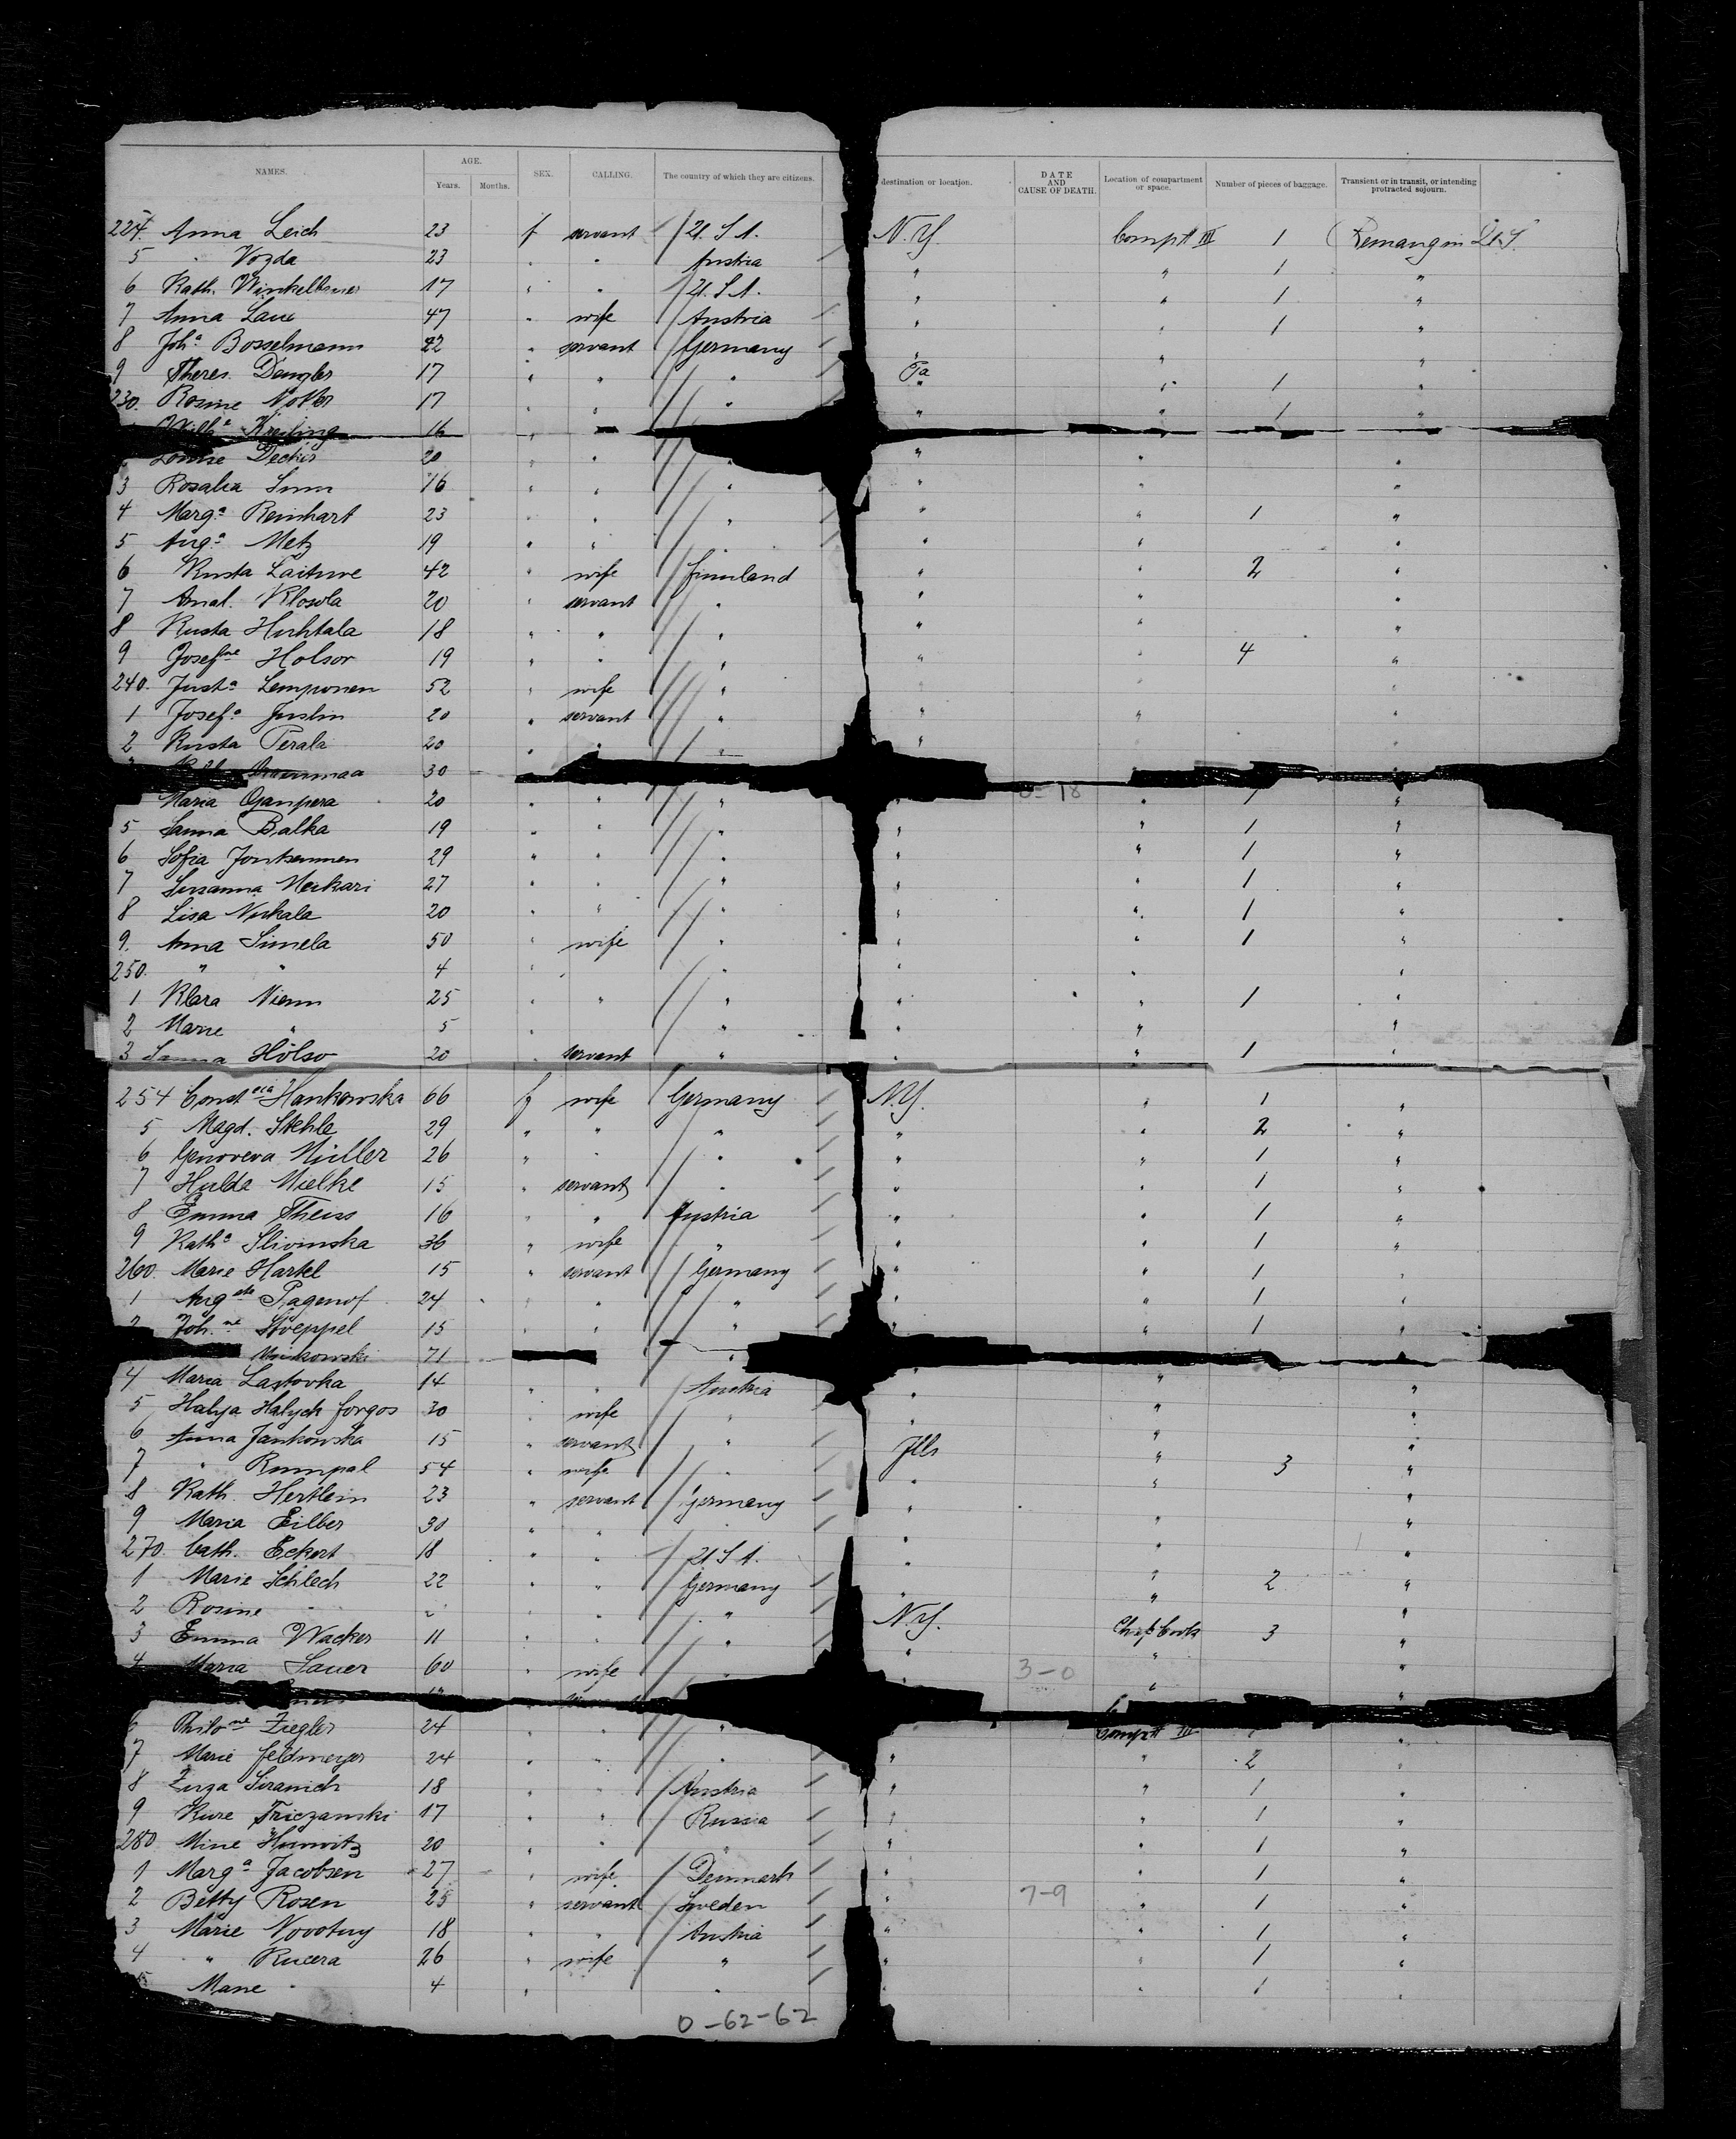 NAMES. AGE. Years. Months. SEX. CALLING. The country of which they are citizens. destination or location. DATE AND CAUSE OF DEATH. Location of compartment or space. Number of pieces of baggage. Transient or in transit, or intending protracted sojourn.
224. Anna Leich 23 f servant U.S.A. N.Y. Compt III 1 U.S.
5 " Vozda 23 " " Austria " " 1 "
6 Kath. 17 " " U.S.A. " " 1 "
7 Anna Laux 47 " wife Austria " " 1 "
8 Joh.a Bosselmann 22 " servant Germany " " "
9 Theres. Dengler 17 " " " Pa " 1 "
230. Rosine 17 " " " " " 1 "
16 "
Louise 20 " " " " " "
3 Rosalia 16 " " " " " "
4 Marg.a Reinhart 23 " " " " " 1 "
5 Aug.a Metz 19 " " " " " "
6 Kusta 42 " wife Finnland " " 2 "
7 Amal. Klosola 20 " servant " " " "
8 Kusta Huhtala 18 " " " " " "
9 Josefine Holsor 19 " " " " " 4 "
240. Just.a Lemponen 52 " wife " " " "
1 Josef.a Juslin 20 " servant " " " "
2 Kusta Perala 20 " " " " " "
30
Maria 20 " " " " " 1 "
5 Sanna Balka 19 " " " " " 1 "
6 Sofia 29 " " " " " 1 "
7 Susanna Meikari 27 " " " " " 1 "
8 Lisa Niskala 20 " " " " " 1 "
9. Anna Simela 50 " wife " " " 1 "
250. " " 4 " " " " "
1 Klara Niemi 25 " " " " " 1 "
2 Marie " 5 " " " " "
3 Sanna Hölso 20 " servant " " " 1 "
254 Constcia Hankowska 66 f wife Germany N.Y. " 1 "
5 Magd. Stehle 29 " " " " " 2 "
6 Genoveva Müller 26 " " " " " 1 "
7 Hulda Mielke 15 " servant " " " 1 "
8 Emma Theiss 16 " " Austria " " 1 "
9 Kath.a Slivinska 36 " wife " " " 1 "
260. Marie Hartel 15 " servant Germany " " 1 "
1 Augste Pagenof 24 " " " " " 1 "
2 Joh.ne Stoeppel 15 " " " " " 1 "
71 "
4 Maria Lastovka 14 " " Austria " " "
5 Halya Halych Gorgos 30 " wife " " " "
6 Anna Jankowska 15 " servant " Ills " "
7 " Rumpal 54 " wife " " " 3 "
8 Kath. Hertlein 23 " servant Germany " " "
9 Maria Eilber 30 " " " " " "
270. Cath. Eckert 18 " " U.S.A. " " "
1 Marie Schlech 22 " " Germany " " 2 "
2 Rosine " " " " " "
3 Emma Wacker 11 " " " N.Y. 3 "
4 Maria Sauer 60 " wife " " 3-0 " "
6 Philone Ziegler 24 " " " Compt III "
7 Marie Feldmeyer 24 " " " " " 2 "
8 Zuza Siranich 18 " " Austria " " 1 "
9 Kure Triczanski 17 " " Russia " " 1 "
280 Mine Hurwitz 20 " " " " " 1 "
1 Marg.a Jacobsen 27 " wife Denmark " " 1 "
2 Betty Rosen 25 " servant Sweden " 7-9 " 1 "
3 Marie Novotny 18 " " Austria " " 1 "
4 " Kucera 26 " wife " " " 1 "
5 Marie " 4 " " " " 1 "
0-62-62